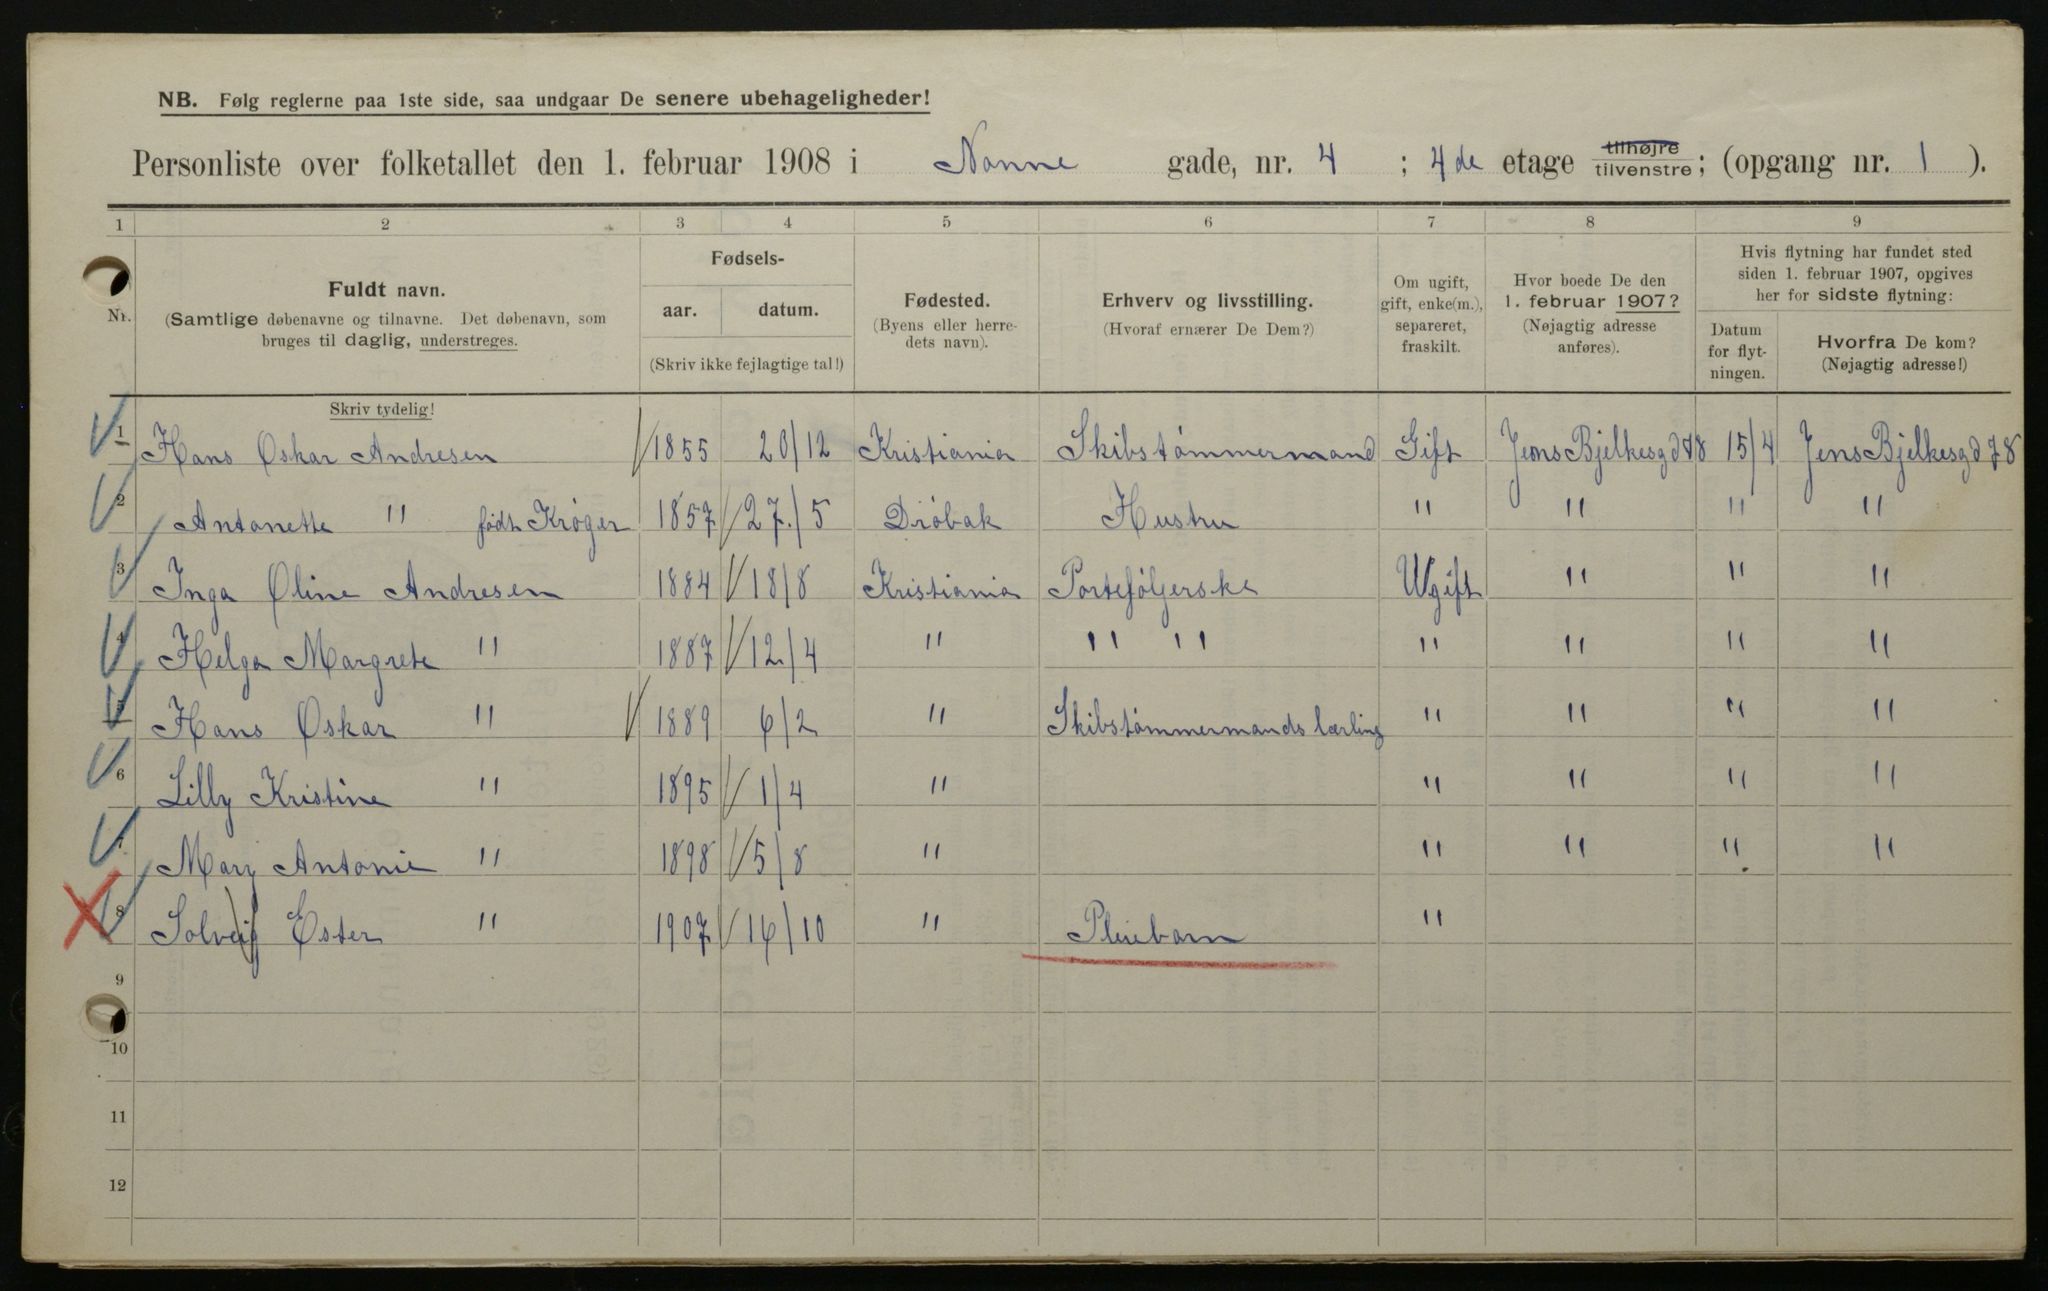 NB. Følg reglerne paa 1ste side, saa undgaar De senere ubehageligheder!
Personliste over folketallet den 1. februar 1908 i Nonne gade, nr. 4 ; 4de etage tilhøjre tilvenstre; (opgang nr. 1 ).
1 2 3 4 5 6 7 8 9
Nr.
Fuldt navn.
(Samtlige døbenavne og tilnavne. Det døbenavn, som
bruges til daglig, understreges.
Skriv tydelig!
Fødsels-
aar. datum.
(Skriv ikke fejlagtige tal!)
Fødested.
(Byens eller herre-
dets navn).
Erhverv og livsstilling.
(Hvoraf ernærer De Dem?)
Om ugift,
gift, enke(m.),
separeret,
fraskilt.
Hvor boede De den
1. februar 1907?
(Nøjagtig adresse
anføres).
Hvis flytning har fundet sted
siden 1. februar 1907, opgives
her for sidste flytning:
Datum
for flyt-
ningen.
Hvorfra De kom?
(Nøjagtig adresse!)
1 Hans Oskar Andresen 1855 20/12 Kristiania Skibstømmermand Gift Jens Bjelkesgd 78 15/4 Jens Bjelkesgd 78
2 Antonette " født Krøger 1857 27./5 Drøbak Hustru " " " "
3 Inga Oline Andresen 1884 18/8 Kristiania Porteføljerske Ugift " " "
4 Helga Margrete " 1887 12/4 " " " " " " "
5 Hans Oskar " 1889 6/2 " Skibstømmermands lærling " " " "
6 Lilly Kristine " 1895 1/4 " " " " "
7 Mary Antonie " 1898 5/8 " " " " "
8 Solveig Ester " 1907 16/10 " Pleiebarn "
9
10
11
12